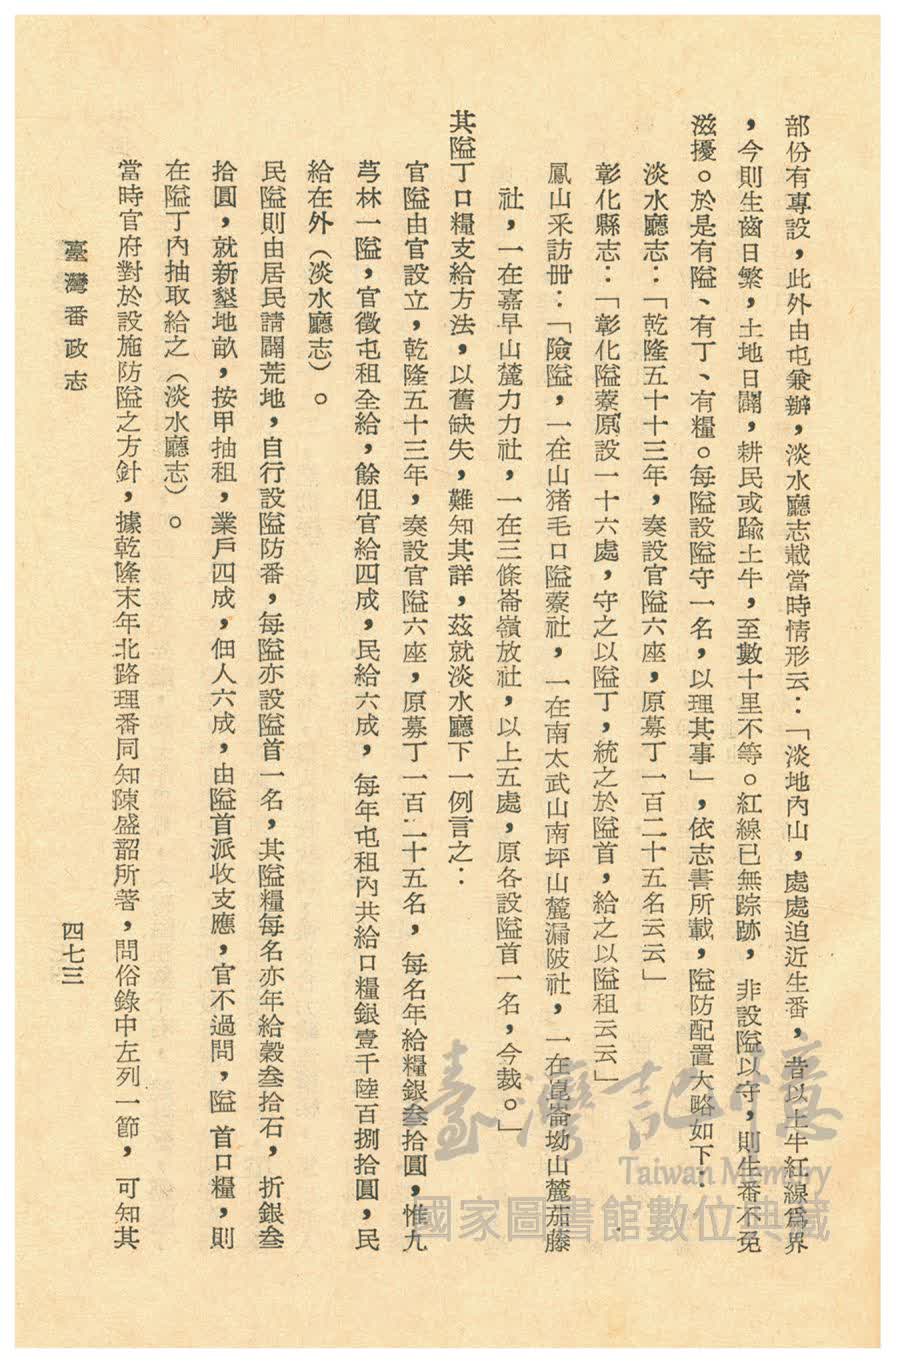 部份有專設，此外由屯兼辦，淡水廳志載當時情形云：「淡地內山，處處迫近生番，昔以土牛紅線爲界
，今則生齒日繁，土地日闢，耕民或踰土牛，至數十里不等。紅線已無踪跡，非設隘以守，則生番不免
滋擾。於是有隘、有丁、有糧。每隘設隘守一名，以理其事」，依志書所載，隘防配置大略如下：
淡水廳志：「乾隆五十三年，奏設官隘六座，原募丁一百二十五名云云」
彰化縣志：「彰化隘藔原設一十六處，守之以隘丁，統之於隘首，給之以隘租云云」
鳳山釆訪册：「險隘，一在山猪毛口隘藔社，一在南太武山南坪山麓漏陂社，一在崑崙坳山麓茄藤
社，一在嘉早山麓力力社，一在三條崙嶺放社，以上五處，原各設隘首一名，今裁。」
其隘丁口糧支給方法，以舊缺失，難知其詳，茲就淡水廳下一例言之：
官隘由官設立，乾隆五十三年，奏設官隘六座，原募丁一百二十五名，每名年給糧銀叁拾圓，惟九
芎林一隘，官徵屯租全給，餘但官給四成，民給六成，每年屯租內共給口糧銀壹千陸百捌拾圓，民
給在外（淡水廳志）。
民隘則由居民請闢荒地，自行設隘防番，每隘亦設隘首一名，其隘糧每名亦年給穀叁拾石，折銀叁
拾圓，就新墾地畝，按甲抽租，業戶四成，佃人六成，由隘首派收支應，官不過問，隘首口糧，則
在隘丁內抽取給之（淡水廳志）。
當時官府對於設施防隘之方針，據乾隆末年北路理番同知陳盛韶所著，問俗錄中左列一節，可知其
臺灣番政志
四七三
臺灣記憶
Taiwan Memory
國家圖書館數位典藏